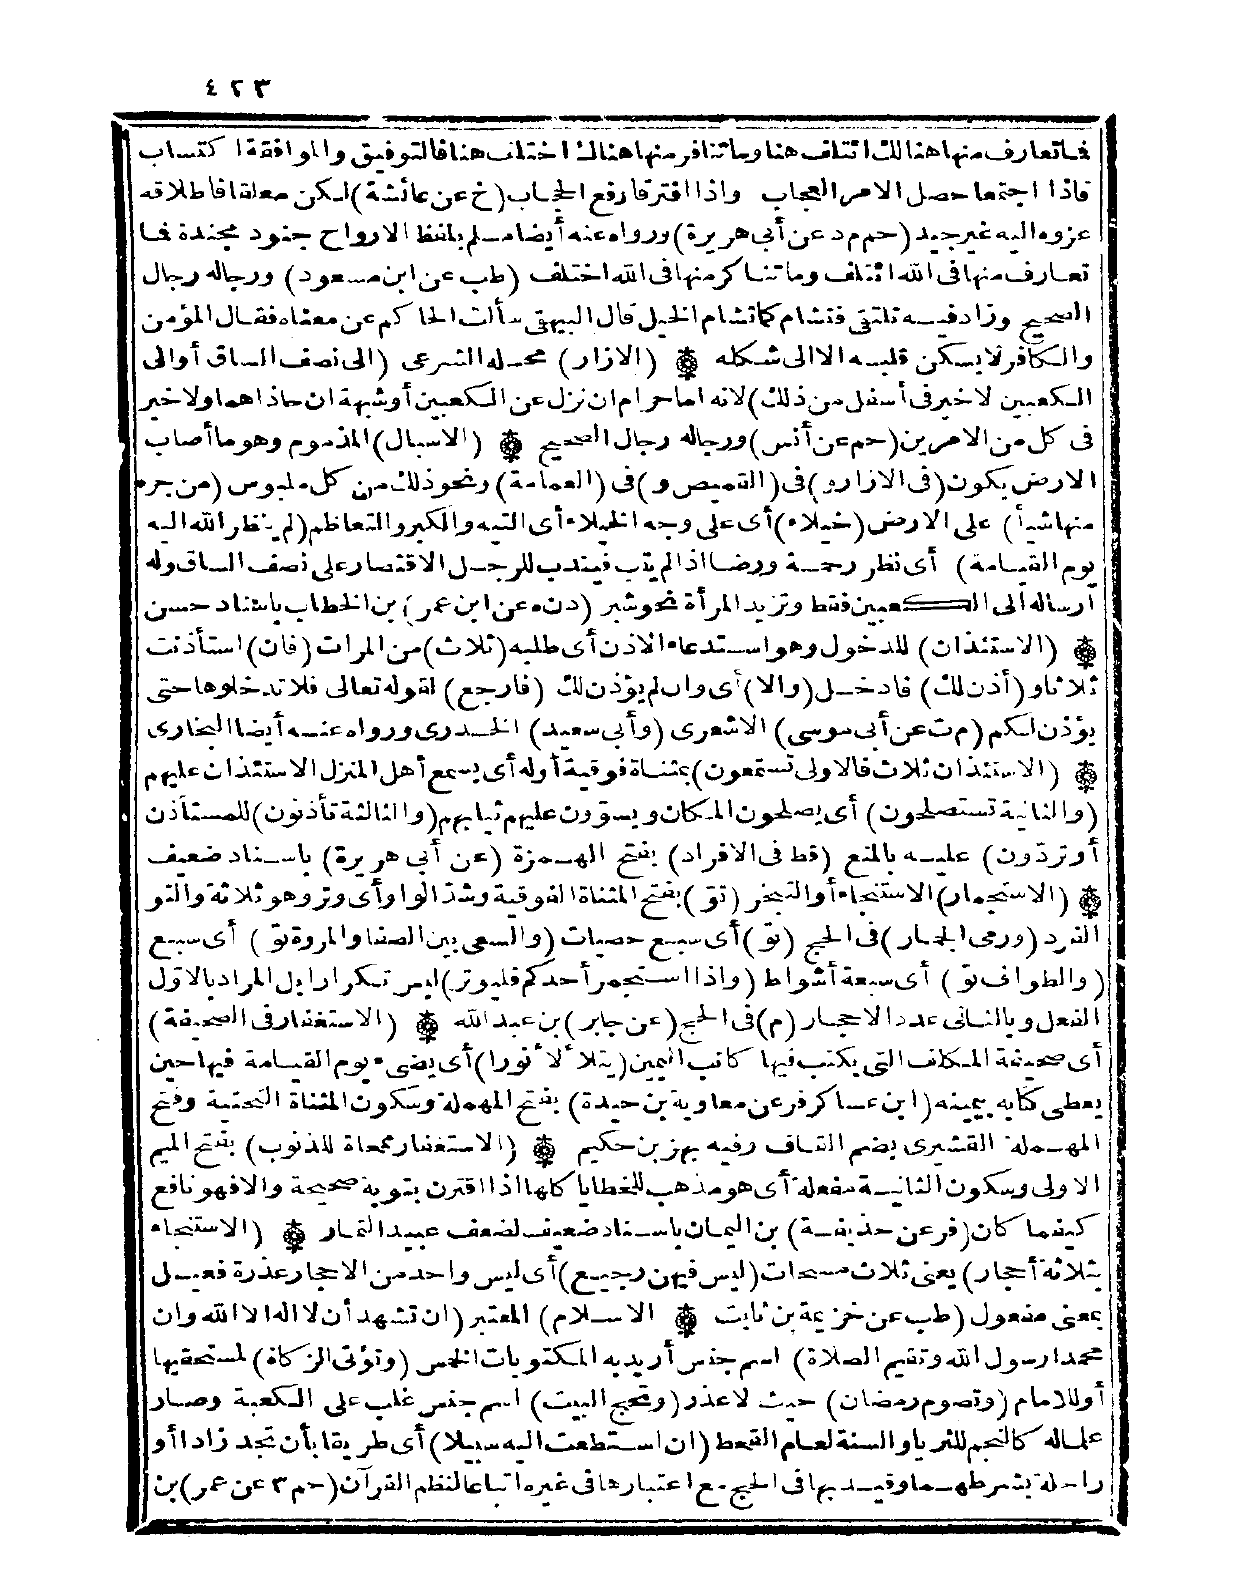 ٤٢٣
فما تعارف منها هنالك ائتلف هنا وما تنافر منها هناك اختلف هنا فالتوفيق والموافقة اكتساب
فاذا اجتمعا حصل الامر العجاب واذا افترقا رفع الحجاب (خ عن عائشة) لكن معلقا فاطلاقه
عزوه اليه غير جيد (حم م د عن أبى هريرة) ورواه عنه أيضا مسلم بلفظ الارواح جنود مجندة فما
تعارف منها فى الله ائتلف وما تناكر منها فى الله اختلف (طب عن ابن مسعود) ورجاله رجال
الصحيح وزاد فيه تلتقى فتشام كما تشام الخيل قال البيهقى سألت الحاكم عن معناه فقال المؤمن
والكافر لا يسكن قلبه الا الى شكله ۞ (الازار) محمله الشرعى (الى نصف الساق أو الى
الكعبين لا خير فى أسفل من ذلك) لانه اما حرام ان نزل عن الكعبين أو شبهة ان حاذاهما ولا خير
فى كل من الامرين (حم عن أنس) ورجاله رجال الصحيح ۞ (الاسبال) المذموم وهو ما أصاب
الارض يكون (فى الازار و) فى (القميص و) فى (العمامة) ونحو ذلك من كل ملبوس (من جر
منها شيأ) على الارض (خيلاء) أى على وجه الخيلاء أى التيه والكبر والتعاظم (لم ينظر الله اليه
يوم القيامة) أى نظر رحمة ورضا اذا لم يتب فيندب للرجل الاقتصار على نصف الساق وله
ارساله الى الكعبين فقط وتزيد المرأة نحو شبر (د ن ه عن ابن عمر) بن الخطاب باسناد حسن
۞ (الاستئذان) للدخول وهو استدعاء الاذن أى طلبه (ثلاث) من المرات (فان) استأذنت
ثلاثا و (أذن لك) فادخل (والا) أى وان لم يؤذن لك (فارجع) لقوله تعالى فلا تدخلوها حتى
يؤذن لكم (م ت عن أبى موسى) الاشعرى (وأبى سعيد) الخدرى ورواه عنه أيضا البخارى
۞ (الاستئذان ثلاث فالاولى تستمعون) بمثناة فوقية أوله أى يسمع أهل المنزل الاستئذان عليهم
(والثانية تستصلحون) أى يصلحون المكان ويسوّون عليهم ثيابهم (والثالثة تأذنون) للمستأذن
أو تردّون) عليه بالمنع (قط فى الافراد) بفتح الهمزة (عن أبى هريرة) باسناد ضعيف
۞ (الاستجمار) الاستنجاء أو التبخر (توّ) بفتح المثناة الفوقية وشدّ الواو أى وتر وهو ثلاثة والتو
الفرد (ورمى الجمار) فى الحج (توّ) أى سبع حصيات (والسعى بين الصفا والمروة توّ) أى سبع
(والطواف توّ) أى سبعة أشواط (واذا استجمر أحدكم فليوتر) ليس تكرارا بل المراد بالاوّل
الفعل وبالثانى عدد الاحجار (م) فى الحج (عن جابر) بن عبد الله ۞ (الاستغفار فى الصحيفة)
أى صحيفة المكلف التى يكتب فيها كاتب اليمين (يتلألأ نورا) أى يضىء يوم القيامة فيها حين
يعطى كتابه بيمينه (ابن عساكر فر عن معاوية بن حيدة) بفتح المهملة وسكون المثناة التحتية وفتح
المهملة القشيرى بضم القاف وفيه بهز بن حكيم ۞ (الاستغفار ممحاة للذنوب) بفتح الميم
الاولى وسكون الثانية مفعلة أى هو مذهب للخطايا كلها اذا اقترن بتوبة صحيحة والا فهو نافع
كيفما كان (فر عن حذيفة) بن اليمان باسناد ضعيف لضعف عبيد التمار ۞ (الاستنجاء
بثلاثة أحجار) يعنى ثلاث مسحات (ليس فيهن رجيع) أى ليس واحد من الاحجار عذرة فعيل
بمعنى مفعول (طب عن خزيمة بن ثابت ۞ الاسلام) المعتبر (ان تشهد أن لا اله الا الله وان
محمدا رسول الله وتقيم الصلاة) اسم جنس أريد به المكتوبات الخمس (وتؤتى الزكاة) لمستحقيها
أو للامام (وتصوم رمضان) حيث لا عذر (وتحج البيت) اسم جنس غلب على الكعبة وصار
علما له كالنجم للثريا والسنة لعام القحط (ان استطعت اليه سبيلا) أى طريقا بأن تجد زادا أو
راحلة بشرطهما وقيد بها فى الحج مع اعتبارها فى غيره اتباعا لنظم القرآن (حم ٣ عن عمر) بن